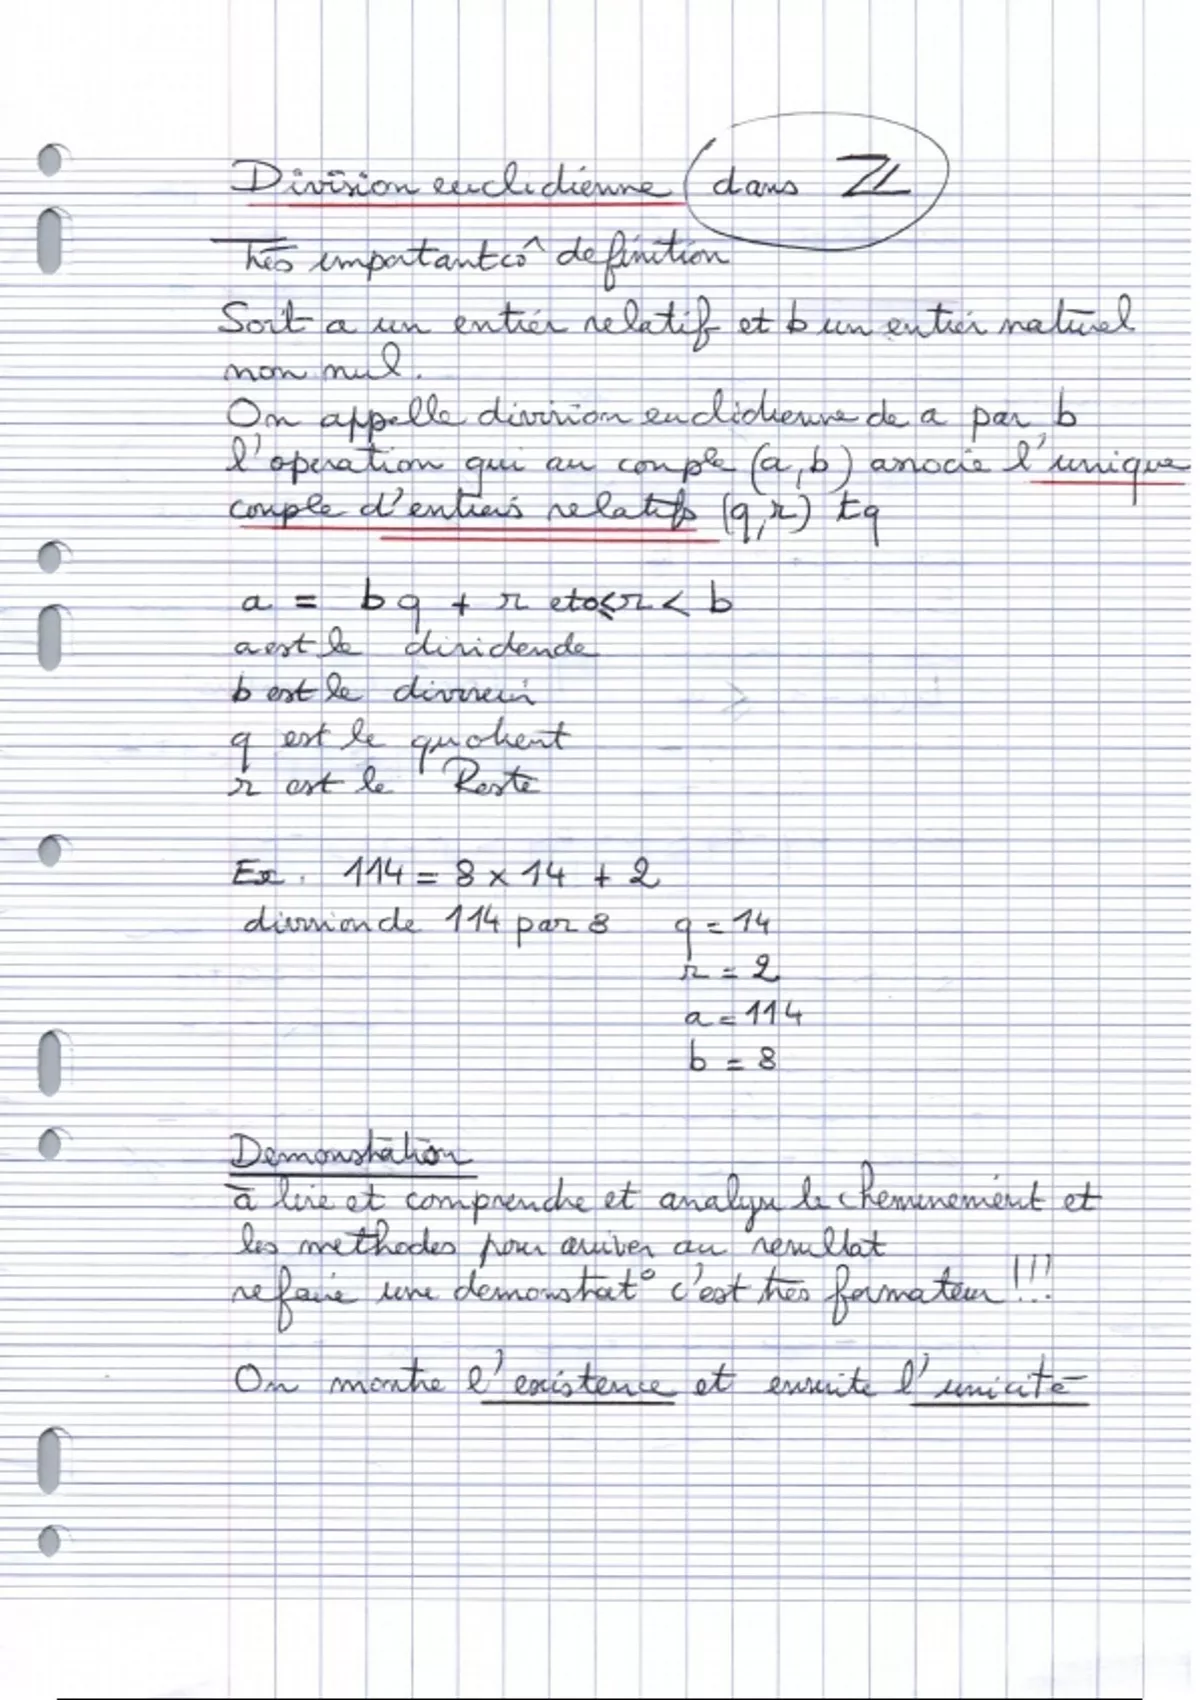 Division euclidienne dans ℤ
Très important cô definition
Soit a un entier relatif et b un entier naturel
non nul.
On appelle division euclidienne de a par b
l'operation qui au couple (a,b) associe l'unique
couple d'entiers relatifs (q,r) tq
a = bq + r et 0≤r < b
a est le dividende
b est le diviseur
q est le quotient
r est le Reste
Ex. 114 = 8 × 14 + 2
division de 114 par 8 q = 14
r = 2
a = 114
b = 8
Demonstration
à lire et comprendre et analyser le cheminement et
les methodes pour arriver au resultat
refaire une demonstrat° c'est très formateur !!!
On montre l'existence et ensuite l'unicité